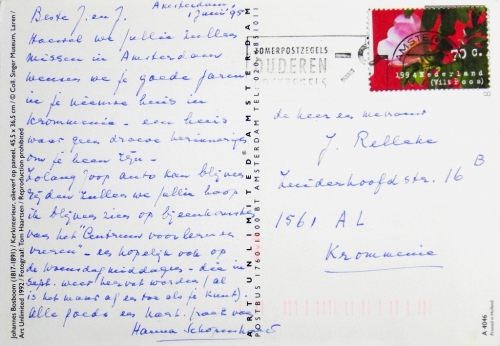 Amsterdam
1 juni '95
Beste J. en J.
Hoewel we jullie zullen
missen in Amsterdam
wensen we je goede jaren
in je nieuwe huis in
Krommenie - een huis
waar geen droeve herinneringen
om je heen zijn.
Zolang oom auto kan blijven
rijden zullen we jullie hoop
ik blijven zien op bijeenkomsten
van het "Centrum voor leven en
vrezen" - en hopelijk ook op
de woensdagmiddagen - die in
Sept. weer hervat worden (al
is het maar af en toe als je kunt).
Alle goeds en hart. groet van
Hanna
Johannes Bosboom (1817-1891) / Kerkinterieur, olieverf op paneel, 45,5 x 36,5 cm / © Coll. Singer Museum, Laren /
Art Unlimited 1992 / Fotograaf: Tom Haartsen / Reproduction prohibited
ART UNLIMITED® AMSTERDAM
POSTBUS 1760 1000 BT AMSTERDAM TEL: 020
ZOMERPOSTZEGELS
OUDEREN
AMSTERDAM
70 c.
1994 Nederland
(Vils Boom)
de heer en mevrouw
J. Relleke
Zuiderhoofdstr. 16 B
1561 AL
Krommenie
A 4046
Printed in Holland